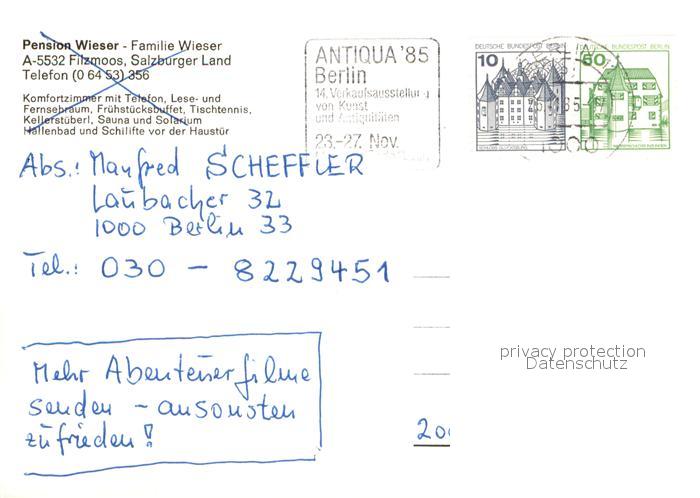 Pension Wieser - Familie Wieser
A-5532 Filzmoos, Salzburger Land
Telefon (0 64 53) 356
Komfortzimmer mit Telefon, Lese- und
Fernsehraum, Frühstücksbuffet, Tischtennis,
Kellerstüberl, Sauna und Solarium
Hallenbad und Schilifte vor der Haustür
ANTIQUA '85
Berlin
14. Verkaufsausstellung
von Kunst
und Antiquitäten
23.-27. Nov.
DEUTSCHE BUNDESPOST BERLIN
10
SCHLOSS GLÜCKSBURG
DEUTSCHE BUNDESPOST BERLIN
50
Abs.: Manfred SCHEFFLER
Laubacher 32
1000 Berlin 33
Tel.: 030 - 8229451
Mehr Abenteuerfilme
senden - ansonsten
zufrieden!
privacy protection
Datenschutz
200